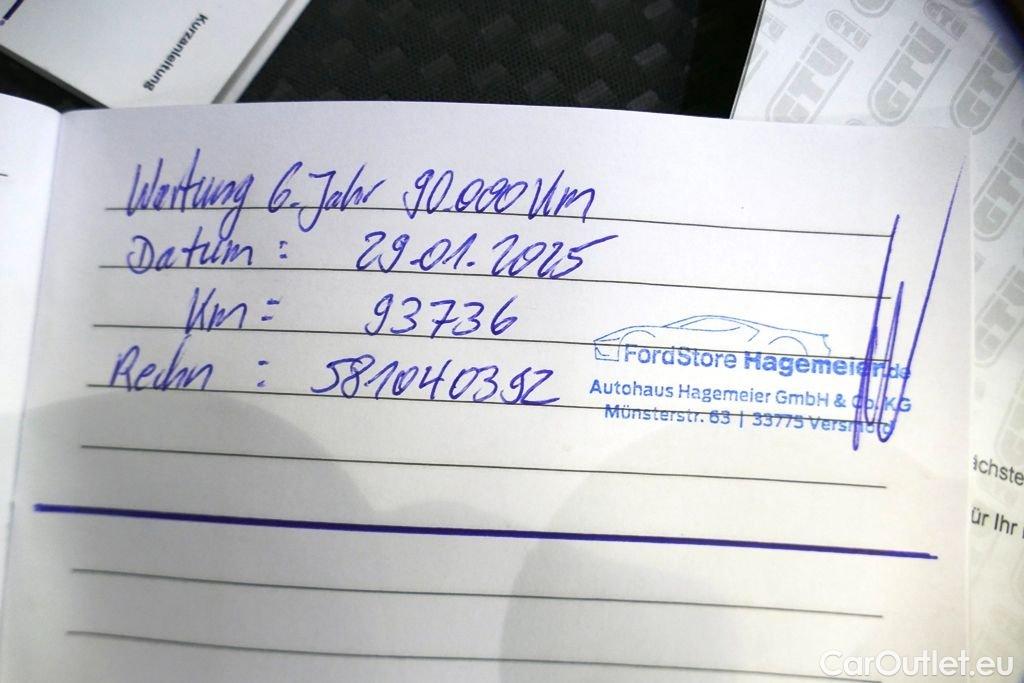 Kurzanleitung
GTÜ GTÜ GTÜ
GTÜ GTÜ
Wartung 6. Jahr 90.000 Km
Datum : 29.01.2025
Km : 93736
Rechn : 581040392
FordStore Hagemeier.de
Autohaus Hagemeier GmbH & Co. KG
Münsterstr. 63 | 33775 Versmold
ächste
ür Ihr
CarOutlet.eu